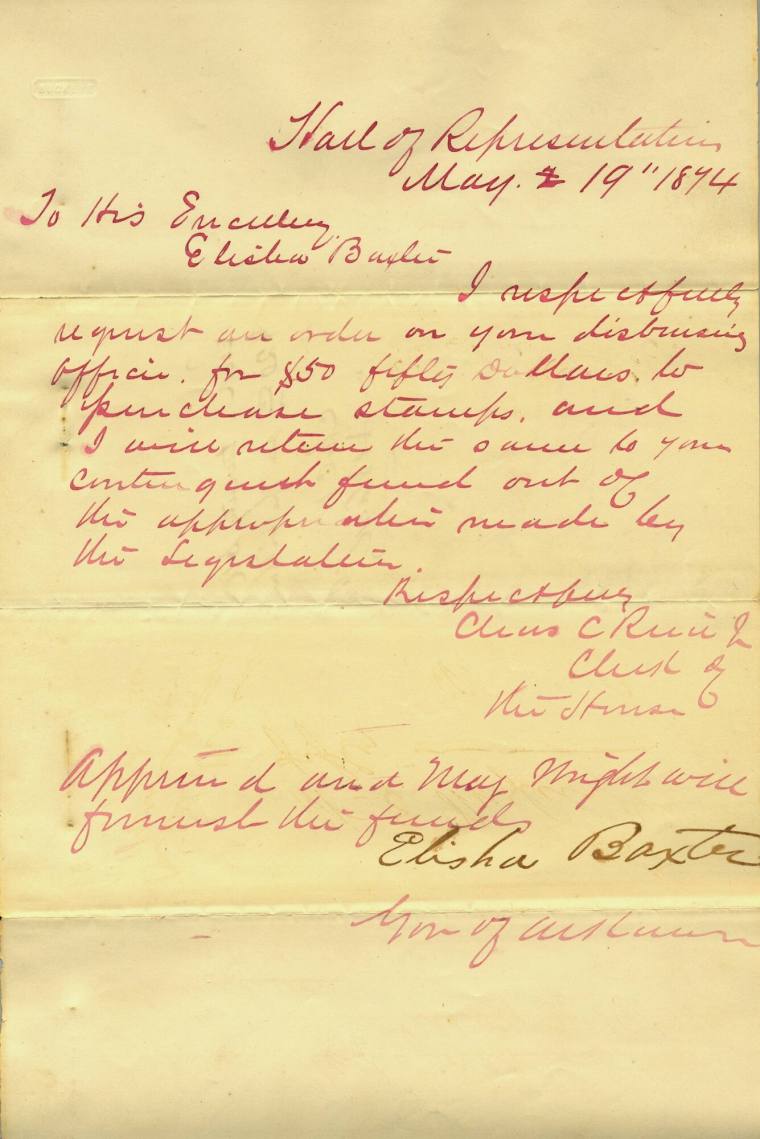 Hall of Representatives
May. 19" 1874
To His Excellency
Elisha Baxter
I respectfully
request an order on your disbursing
officer. for $50 fifty Dollars. to
purchase stamps. and
I will return the same to your
contingent fund out of
the appropriation made by
the Legislature.
Respectfully
Chas C Reid Jr
Clerk of
the House
Approved and Maj Wright will
furnish the funds
Elisha Baxter
Gov of Arkansas